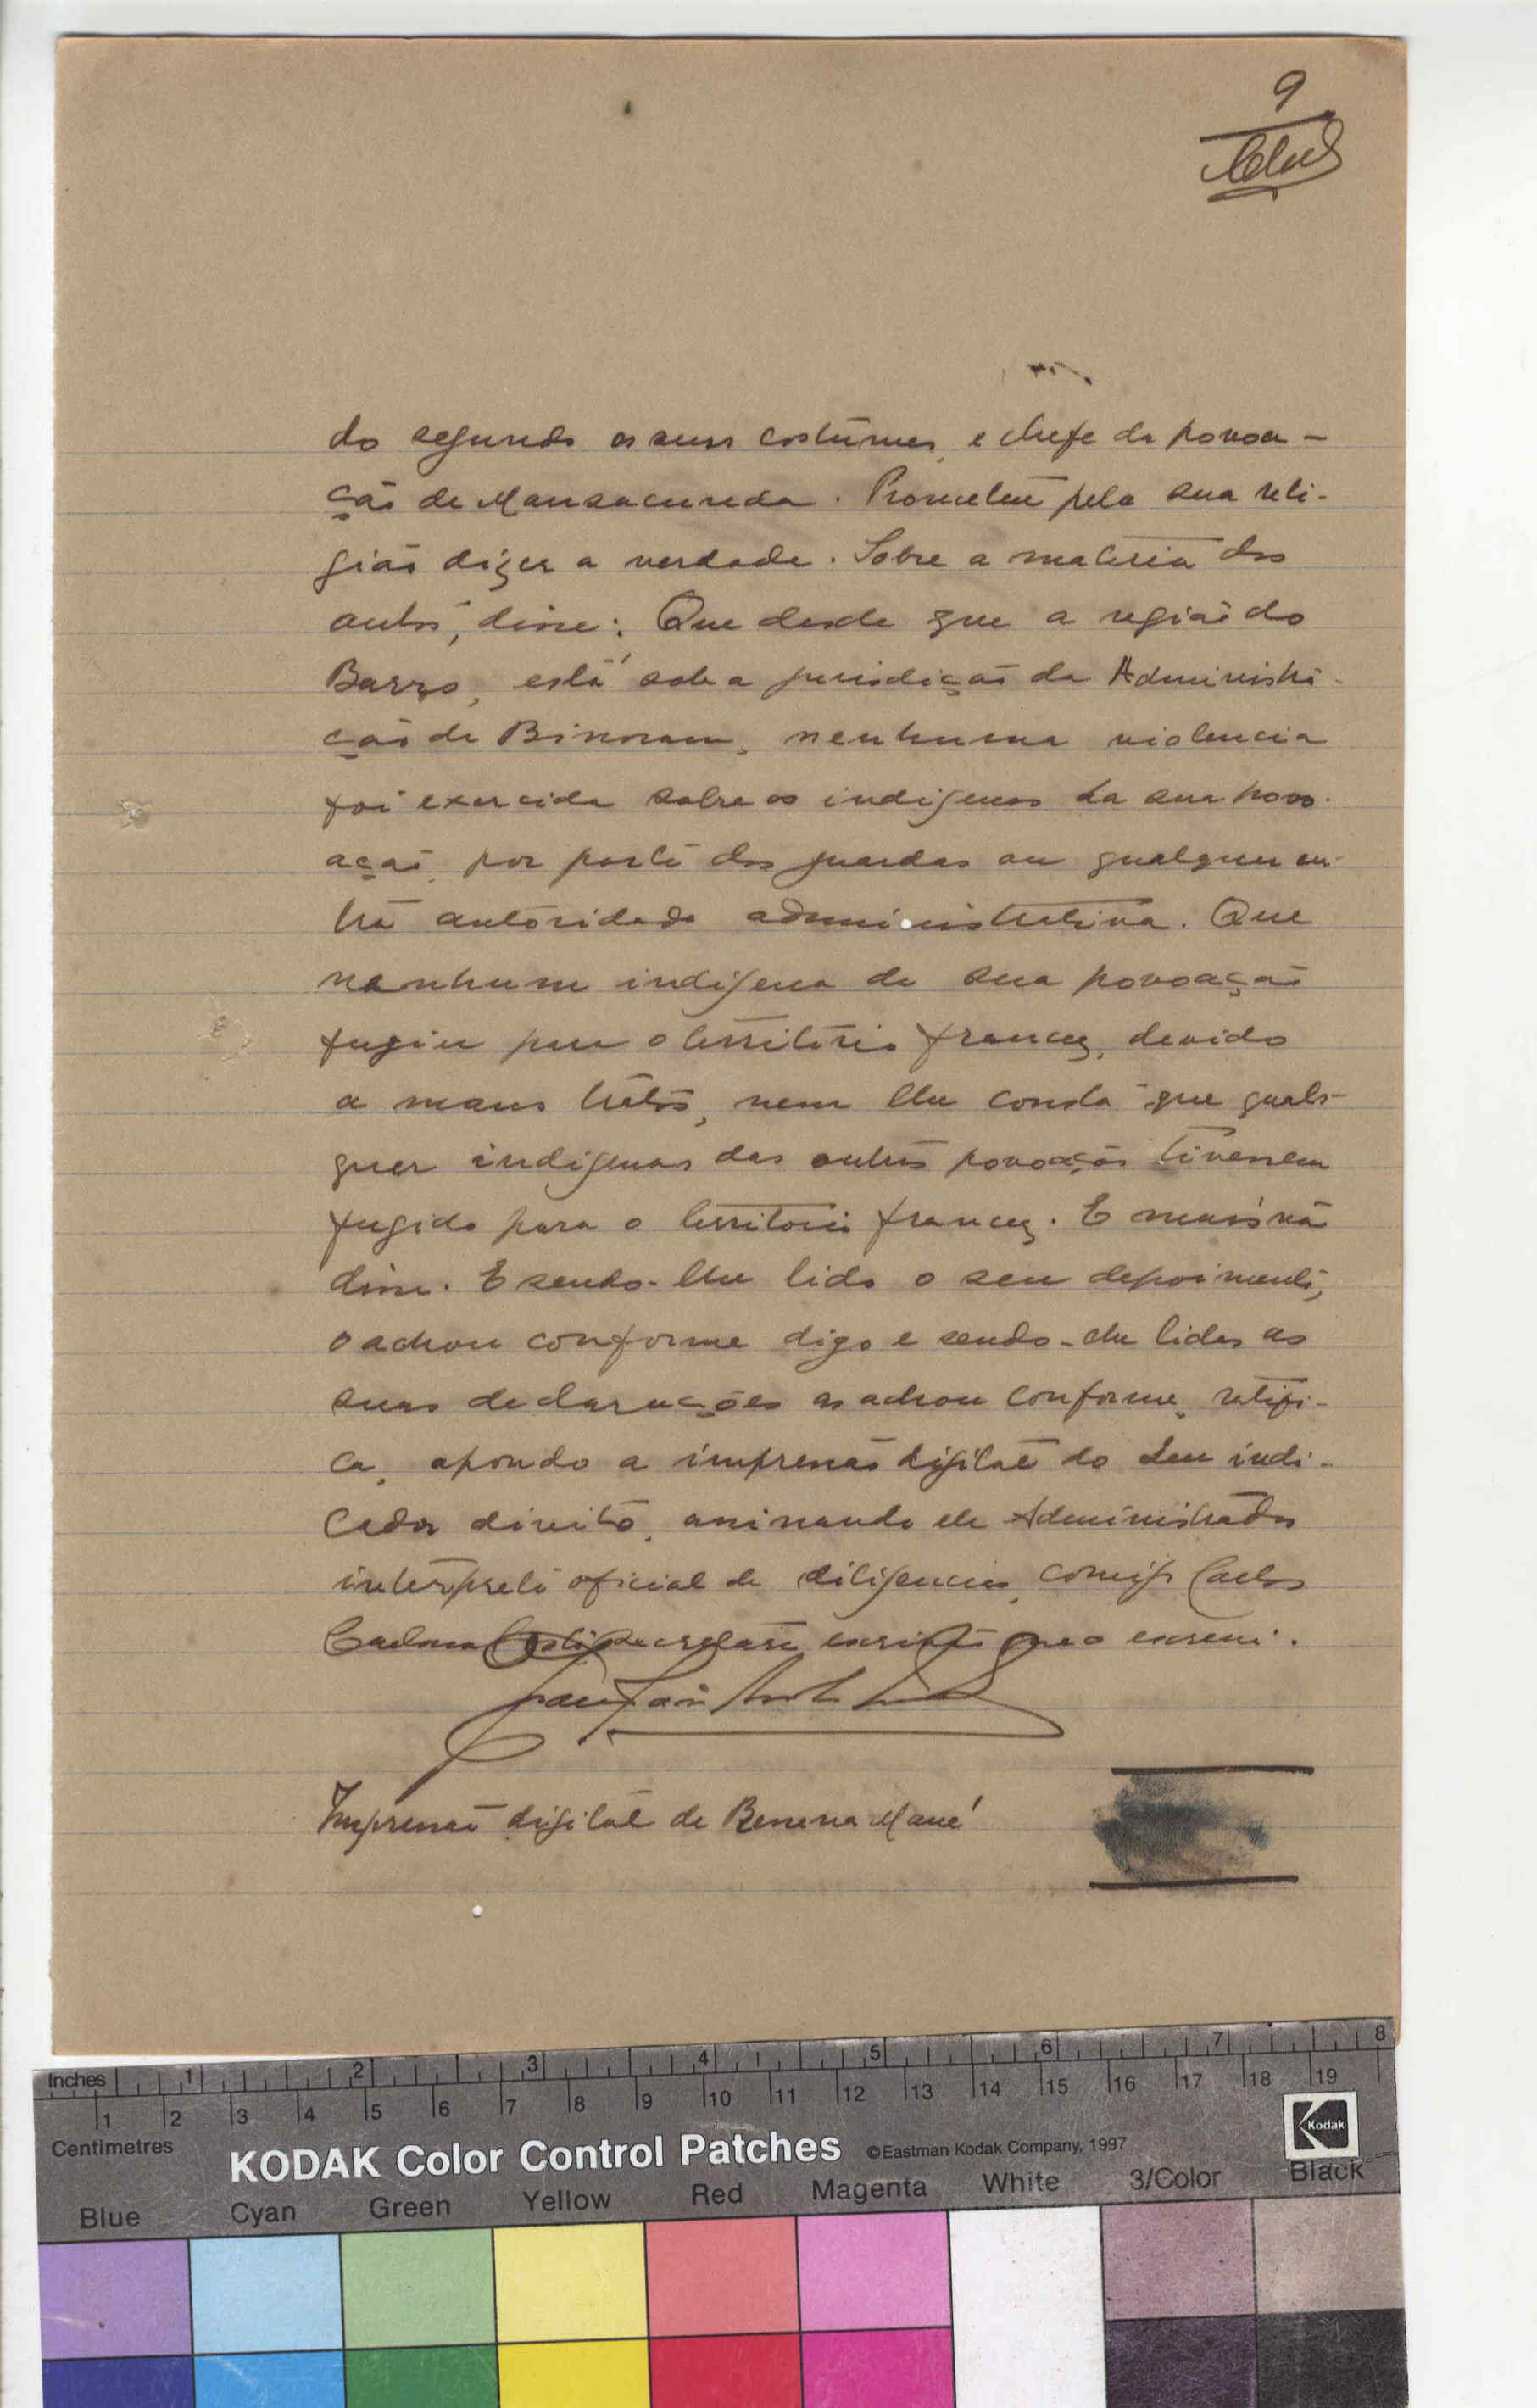 9
do segundo os seus costumes, e chefe da povoa-
ção de Mansacunda. Prometeu pela sua reli-
gião dizer a verdade. Sobre a materia dos
autos, disse: Que desde que a região do
Barro, está sob a jurisdição da Administra-
ção de Binnram, nenhuma violencia
foi exercida sobre os indigenas da sua povo-
ação, por parte dos guardas ou qualquer ou-
tra autoridade administrativa. Que
nenhum indigena da sua povoação
fugiu para o territorio francez, devido
a maus tratos, nem lhe consta que quals-
quer indigenas das outras povoações tivessem
fugido para o territorio francez. E mais não
disse. E sendo-lhe lido o seu depoimento,
o achou conforme digo e sendo-lhe lidas as
suas declarações as achou conforme, ratifi-
ca, apondo a impressão digital do seu indi-
cador direito, assinando ele Administrador
interprete oficial de diligencias, comigo Carlos
secretario escrivão que o escrevi.
Impressão digital de Benena Mané
Inches 1 2 3 4 5 6 7 8
1 2 3 4 5 6 7 8 9 10 11 12 13 14 15 16 17 18 19
Centimetres
KODAK Color Control Patches ©Eastman Kodak Company, 1997 Kodak
Blue Cyan Green Yellow Red Magenta White 3/Color Black